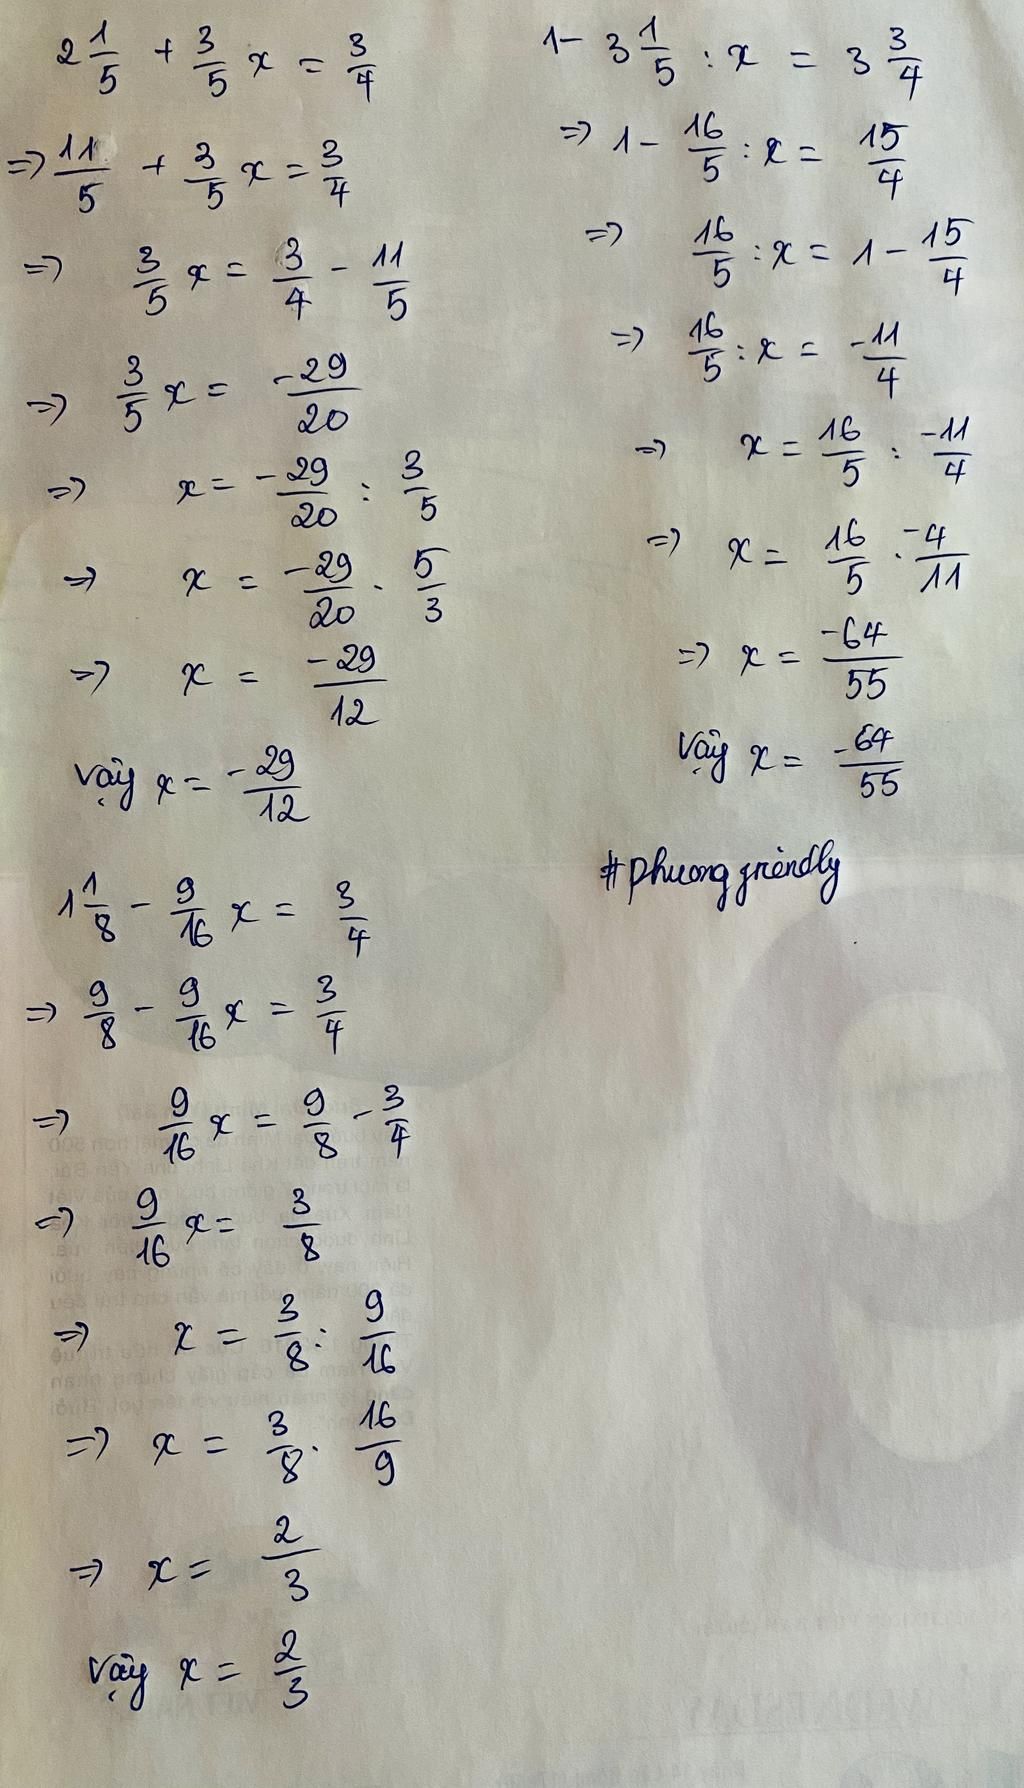 2 1/5 + 3/5 x = 3/4
=> 11/5 + 3/5 x = 3/4
=> 3/5 x = 3/4 - 11/5
=> 3/5 x = -29/20
=> x = -29/20 : 3/5
=> x = -29/20 . 5/3
=> x = -29/12
Vậy x = -29/12
1 1/8 - 9/16 x = 3/4
=> 9/8 - 9/16 x = 3/4
=> 9/16 x = 9/8 - 3/4
=> 9/16 x = 3/8
=> x = 3/8 : 9/16
=> x = 3/8 . 16/9
=> x = 2/3
Vậy x = 2/3
1 - 3 1/5 : x = 3 3/4
=> 1 - 16/5 : x = 15/4
=> 16/5 : x = 1 - 15/4
=> 16/5 : x = -11/4
=> x = 16/5 : -11/4
=> x = 16/5 . -4/11
=> x = -64/55
Vậy x = -64/55